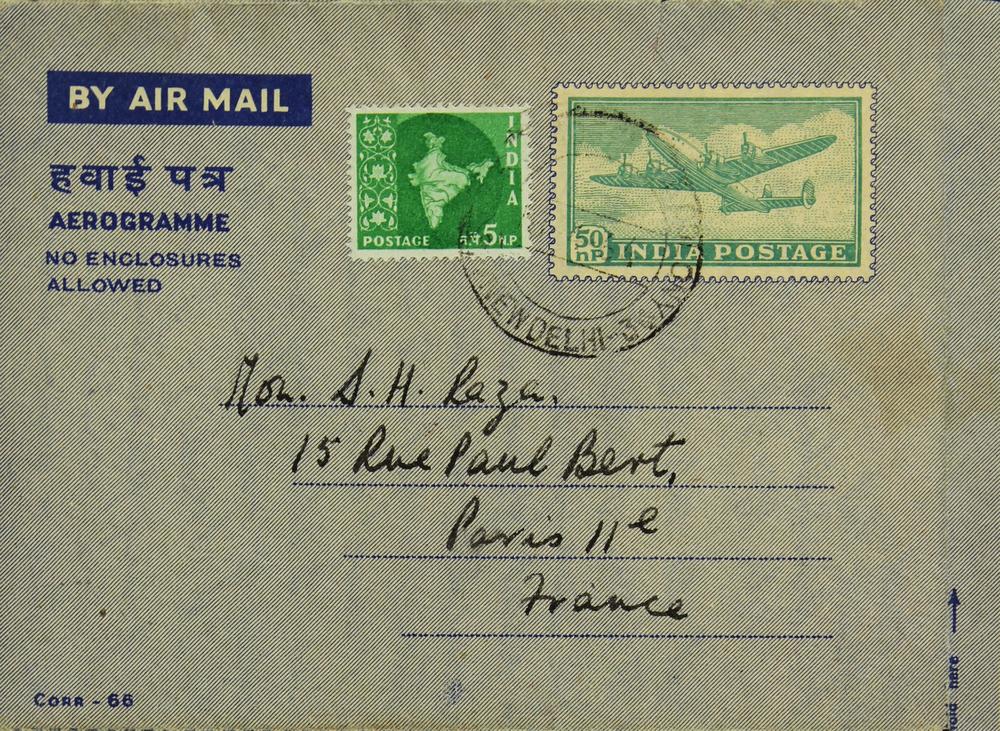 BY AIR MAIL
हवाई पत्र
AEROGRAMME
NO ENCLOSURES
ALLOWED
INDIA
POSTAGE न.पै. 5 N.P.
50
nP. INDIA POSTAGE
NEW DELHI-3
Mon. S. H. Raza.
15 Rue Paul Bert,
Paris 11e
France
CORR - 66
Fold here